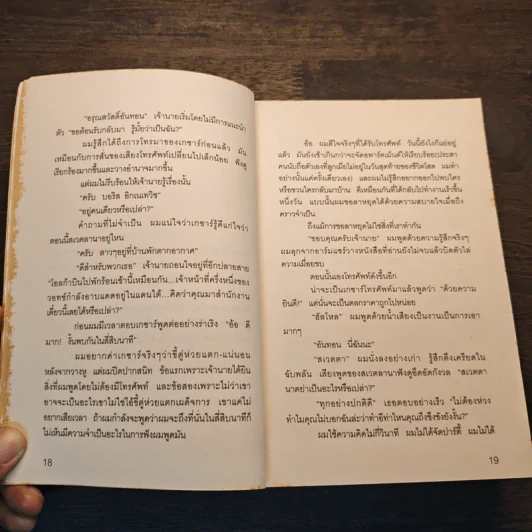 "อรุณสวัสดิ์อันทอน" เจ้านายเริ่มโดยไม่มีการแนะนำ
ตัว "ขอต้อนรับกลับมา รู้มั้ยว่าเป็นฉัน?"
ผมรู้สึกได้ถึงการโทรมาของเกซาร์ก่อนแล้ว มัน
เหมือนกับการสั่นของเสียงโทรศัพท์เปลี่ยนไปเล็กน้อย ฟังดู
เรียกร้องมากขึ้นและวางอำนาจมากขึ้น
แต่ผมไม่รีบร้อนให้เจ้านายรู้เรื่องนั้น
"ครับ บอริส อิกเนเทวิช"
"อยู่คนเดียวหรือเปล่า?"
คำถามที่ไม่จำเป็น ผมแน่ใจว่าเกซาร์รู้ดีแก่ใจว่า
ตอนนี้สเวตลานาอยู่ไหน
"ครับ สาวๆอยู่ที่บ้านพักตากอากาศ"
"ดีสำหรับพวกเธอ" เจ้านายถอนใจอยู่ที่อีกปลายสาย
"โอลก้าบินไปพักร้อนเช้านี้เหมือนกัน...เจ้าหน้าที่ครึ่งหนึ่งของ
วอทช์กำลังอาบแดดอยู่ในแดนใต้...คิดว่าคุณมาสำนักงาน
เดี๋ยวนี้เลยได้หรือเปล่า?"
ก่อนผมมีเวลาตอบเกซาร์พูดต่ออย่างร่าเริง "อ้อ ดี
มาก! งั้นพบกันในสี่สิบนาที"
ผมอยากด่าเกซาร์จริงๆว่าขี้ตู่ห่วยแตก-แน่นอน
หลังจากวางหู แต่ผมปิดปากสนิท ข้อแรกเพราะเจ้านายได้ยิน
สิ่งที่ผมพูดโดยไม่ต้องมีโทรศัพท์ และข้อสองเพราะไม่ว่าเขา
อาจจะเป็นอะไรเขาไม่ใช่ไอ้ขี้ตู่ห่วยแตกเผด็จการ เขาแค่ไม่
อยากเสียเวลา ถ้าผมกำลังจะพูดว่าผมจะถึงที่นั่นในสี่สิบนาทีก็
ไม่เห็นมีความจำเป็นอะไรในการฟังผมพูดมัน
18
อ้อ ผมดีใจจริงๆที่ได้รับโทรศัพท์ วันนี้ยังไงก็แย่อยู่
แล้ว มันยังเช้าเกินกว่าจะจัดอพาร์ตเม้นต์ให้เรียบร้อยประสา
คนนับถือตัวเองที่ลูกเมียไม่อยู่ในวันสุดท้ายของชีวิตโสด ผมทำ
อย่างนั้นแค่ครั้งเดียวเอง) และผมไม่รู้สึกอยากออกไปพบใคร
หรือชวนใครกลับมาบ้าน ดีเหมือนกันที่ได้กลับไปทำงานเร็วขึ้น
หนึ่งวัน แบบนั้นผมขอลาหยุดได้ด้วยความสบายใจเมื่อถึง
คราวจำเป็น
ถึงแม้การขอลาหยุดไม่ใช่สิ่งที่เราทำกัน
"ขอบคุณครับเจ้านาย" ผมพูดด้วยความรู้สึกจริงๆ
ผมลุกจากอาร์มแชร์วางหนังสือที่อ่านยังไม่จบแล้วบิดตัวไล่
ความเมื่อยขบ
ตอนนั้นเองโทรศัพท์ดังขึ้นอีก
น่าจะเป็นเกซาร์โทรศัพท์มาแล้วพูดว่า "ด้วยความ
ยินดี!" แต่นั่นจะเป็นตลกราคาถูกไปหน่อย
"ฮัลโหล" ผมพูดด้วยน้ำเสียงเป็นงานเป็นการเอา
มากๆ
"อันทอน นี่ฉันนะ"
"สเวตตา" ผมนั่งลงอย่างเก่า รู้สึกตึงเครียดใน
ฉับพลัน เสียงพูดของสเวตลานาฟังดูอึดอัดกังวล "สเวตตา
นาดย่าเป็นอะไรหรือเปล่า?"
"ทุกอย่างปกติดี" เธอตอบอย่างเร็ว "ไม่ต้องห่วง
ทำไมคุณไม่บอกฉันล่ะว่าทำอีท่าไหนคุณถึงซึ้งซังยังงั้น?"
ผมใช้ความคิดไม่กี่วินาที ผมไม่ได้จัดปาร์ตี้ ผมไม่ได้
19